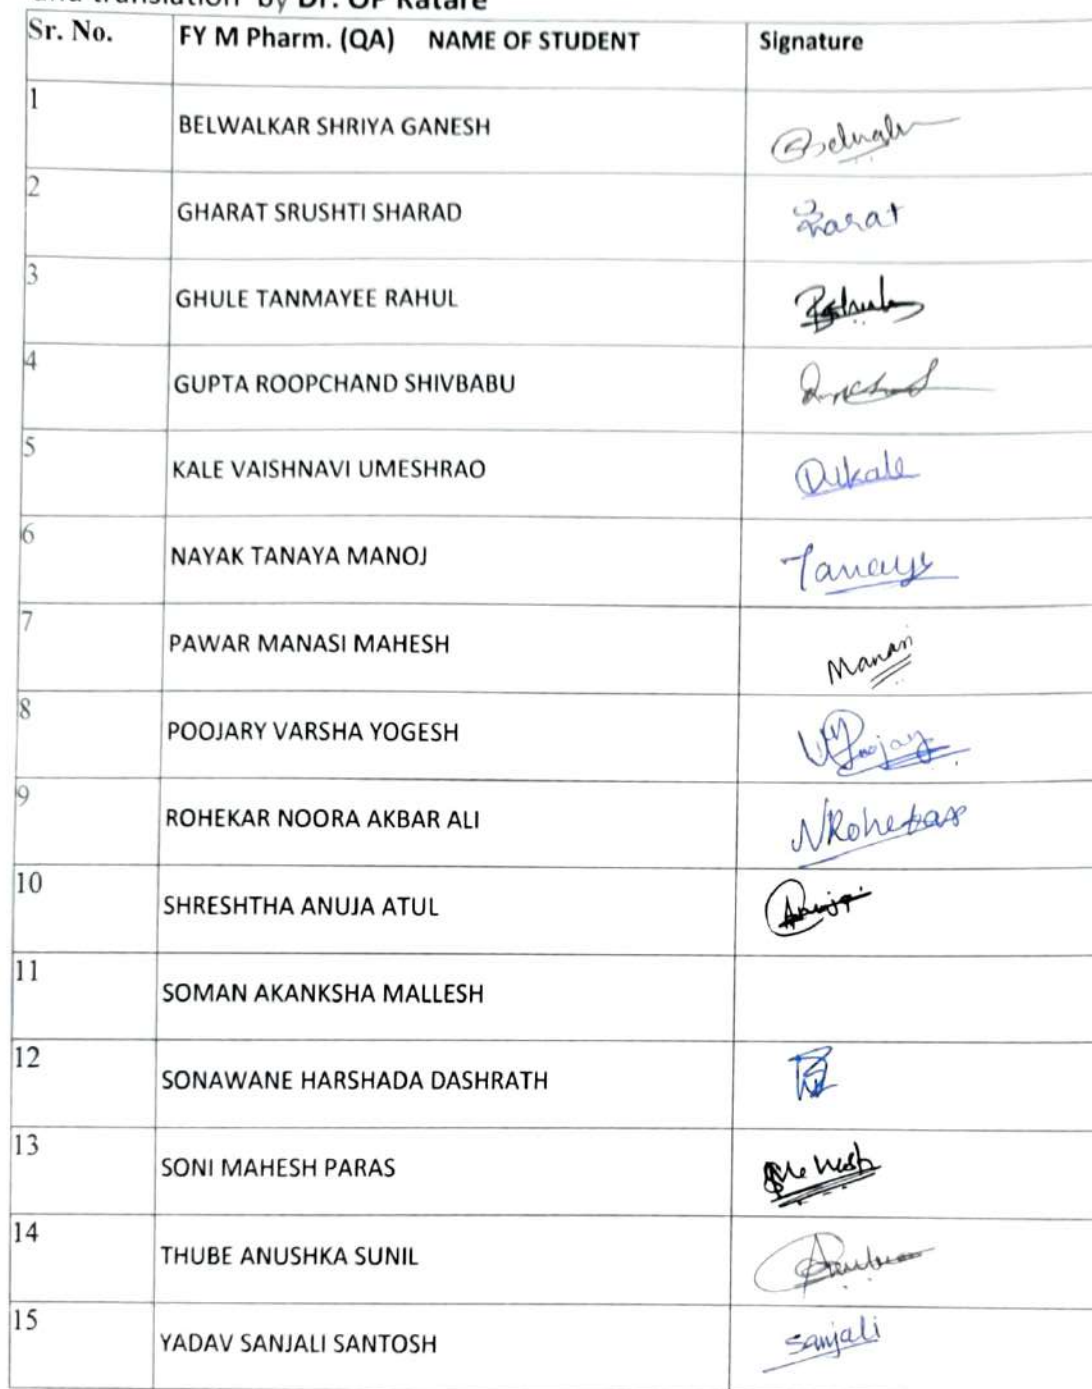 and translation by Dr. OP Katare
Sr. No. FY M Pharm. (QA) NAME OF STUDENT Signature
1 BELWALKAR SHRIYA GANESH
2 GHARAT SRUSHTI SHARAD
3 GHULE TANMAYEE RAHUL
4 GUPTA ROOPCHAND SHIVBABU
5 KALE VAISHNAVI UMESHRAO
6 NAYAK TANAYA MANOJ Tanaya
7 PAWAR MANASI MAHESH Manasi
8 POOJARY VARSHA YOGESH
9 ROHEKAR NOORA AKBAR ALI NRohekar
10 SHRESHTHA ANUJA ATUL
11 SOMAN AKANKSHA MALLESH
12 SONAWANE HARSHADA DASHRATH
13 SONI MAHESH PARAS
14 THUBE ANUSHKA SUNIL
15 YADAV SANJALI SANTOSH Sanjali